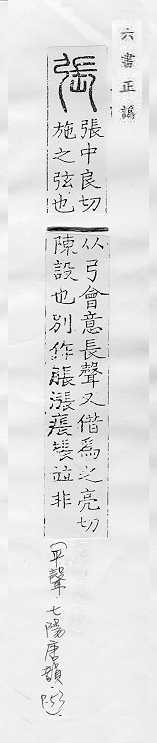 六書正譌
張
張中良切
施之弦也
从弓會意長聲又借為之亮切
陳設也別作脹漲痮𢠵竝非
(平聲七陽唐韻 P.53)